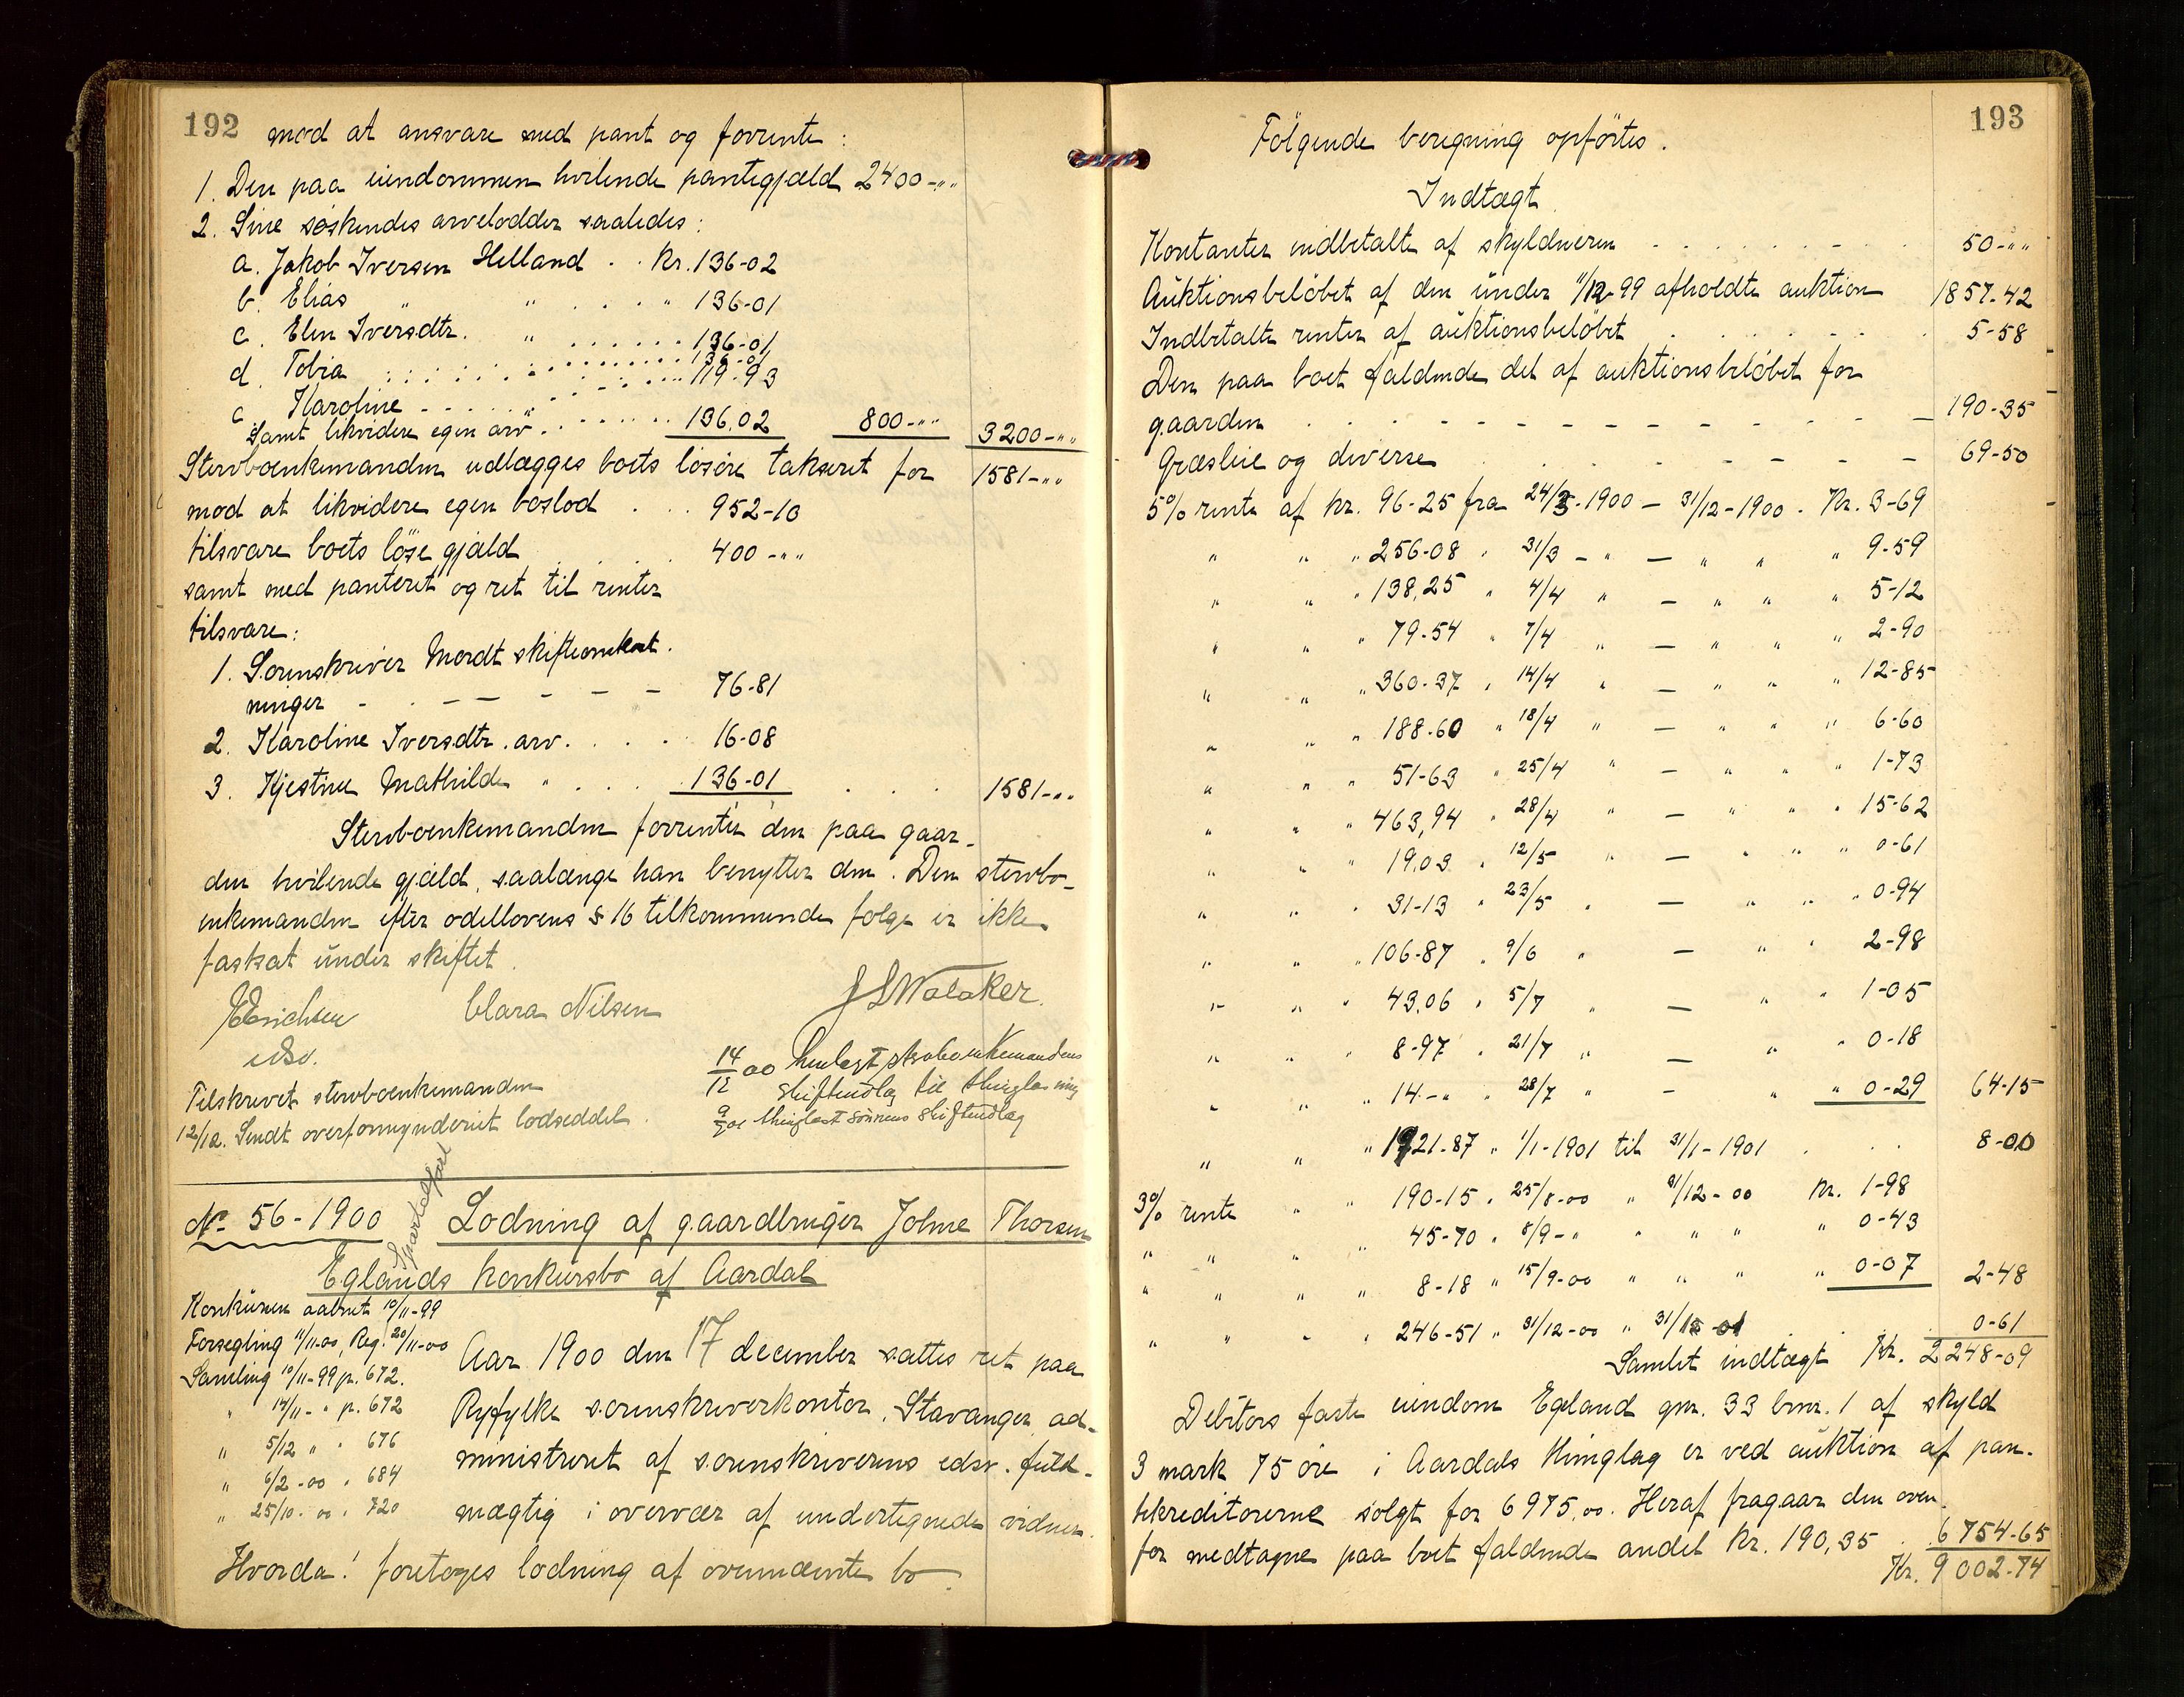 192
mod at ansvare med pant og forrente:
1. Den paa eiendommen hvilende pantegjæld 2400-""
2. Sine søskendes arvelodder saaledes:
a. Jakob Iversen Helland . . Kr. 136-02
b. Elias " " . . . " 136-01
c. Elen Iversdtr. " . . . . . . 136-01
d. Tobia . . . . . . 136-01
119-93
c Karoline - - - - - "
Samt likvidere egen arv . . . . . . 136.02 800-"" 3200-""
Stervboenkemanden udlægges boets løsøre takseret for 1581-""
mod at likvidere egen boslod . . . 952-10
tilsvare boets løse gjæld . . . 400-""
samt med panteret og ret til renter
tilsvare:
1. Sorenskriver Mordt skifteomkost.
ninger - - - - - - 76-81
2. Karoline Iversdtr. arv. . . . . 16-08
3. Kjestine Mathilde " . . . . 136-01 . . . 1581-""
Stervboenkemanden forrenter den paa gaar-
den hvilende gjæld, saalænge han benytter den. Den stervbo-
enkemanden efter odellovens § 16 tilkommende følge er ikke
faskat under skiftet.
Erichsen Clara Nilsen J S Walaker.
edsv.
Tilskrevet stervboenkemanden
12/12. Sendt overformynderiet lodseddel.
14/12 00 henlagt stervboenkemandens
skifteudlæg til thinglæsning
9/ 01 thinglæst sønnens skifteudlæg
No 56-1900 Lodning af gaardbruger Jolme Thorsen
Eglands konkursbo af Aardal
Konkursen aabnet 10/11-99
Forsegling 11/11-00, Reg. 20/11-00
Samling 10/11-99 p. 672.
" 14/11-" p. 672
" 5/12 " " 676
" 6/2-00 " 684
" 25/10-00 " 720
Aar 1900 den 17 december sattes ret paa
Ryfylke sorenskriverkontor, Stavanger, ad-
ministreret af sorenskriverens edsv. fuld-
mægtig i overvær af undertegnede vidner.
Hvorda! foretoges lodning af ovennævnte bo.
193
Følgende beregning opførtes.
Indtægt
Kontanter indbetalt af skyldneren . . . . . . . 50-""
Auktionsbeløbet af den under 11/12-99 afholdte auktion 1857-42
Indbetalte renter af auktionsbeløbet . . . . . . 5-58
Den paa boet faldende del af auktionsbeløbet for
gaarden . . . - - - - - - - - 190-35
Græsleie og diverse . . . - - - - 69-50
5% rente af kr. 96-25 fra 24/3-1900 - 31/12-1900. Kr. 3-69
" " " 256-08 " 31/3 - " - " " " 9-59
" " " 138,25 " 4/4 " - " " " 5-12
" " " 79-54 " 7/4 " - " " " 2-90
" " " 360-37 " 14/4 " - " " " 12-85
" " " 188-60 " 18/4 " - " " " 6-60
" " " 51-63 " 25/4 " - " " " 1-73
" " " 463,94 " 28/4 " - " " " 15-62
" " " 19,03 " 12/5 " - " " " 0-61
" " " 31-13 " 23/5 " - " " " 0-94
" " " 106-87 " 9/6 " - " " 2-98
" " " 43,06 " 5/7 " - " " 1-05
" " " 8-97 " 21/7 " - " " 0-18
" " " 14-" " 28/7 " - " " 0-29 64-15
" " " 1921-87 " 1/1-1901 til 31/1-1901 . . . 8-00
3% rente " " 190-15 " 25/8-00 " 31/12-00 Kr. 1-98
" " " " 45-70 " 8/9-" " " " " 0-43
" " " " 8-18 " 15/9-00 " " " " 0-07 2-48
" " " " 246-51 " 31/12-00 " 31/1 01 . . 0-61
Samlet indtægt Kr. 2248-09
Debitors faste eiendom Egeland gnr. 33 bnr. 1 af skyld
3 mark 75 øre i Aardals thinglag er ved auktion af pan-
tekreditorerne solgt for 6975,00. Heraf fragaar den oven-
for medtagne paa boet faldende andel Kr. 190,35 . . 6754-65
Kr. 9002-74